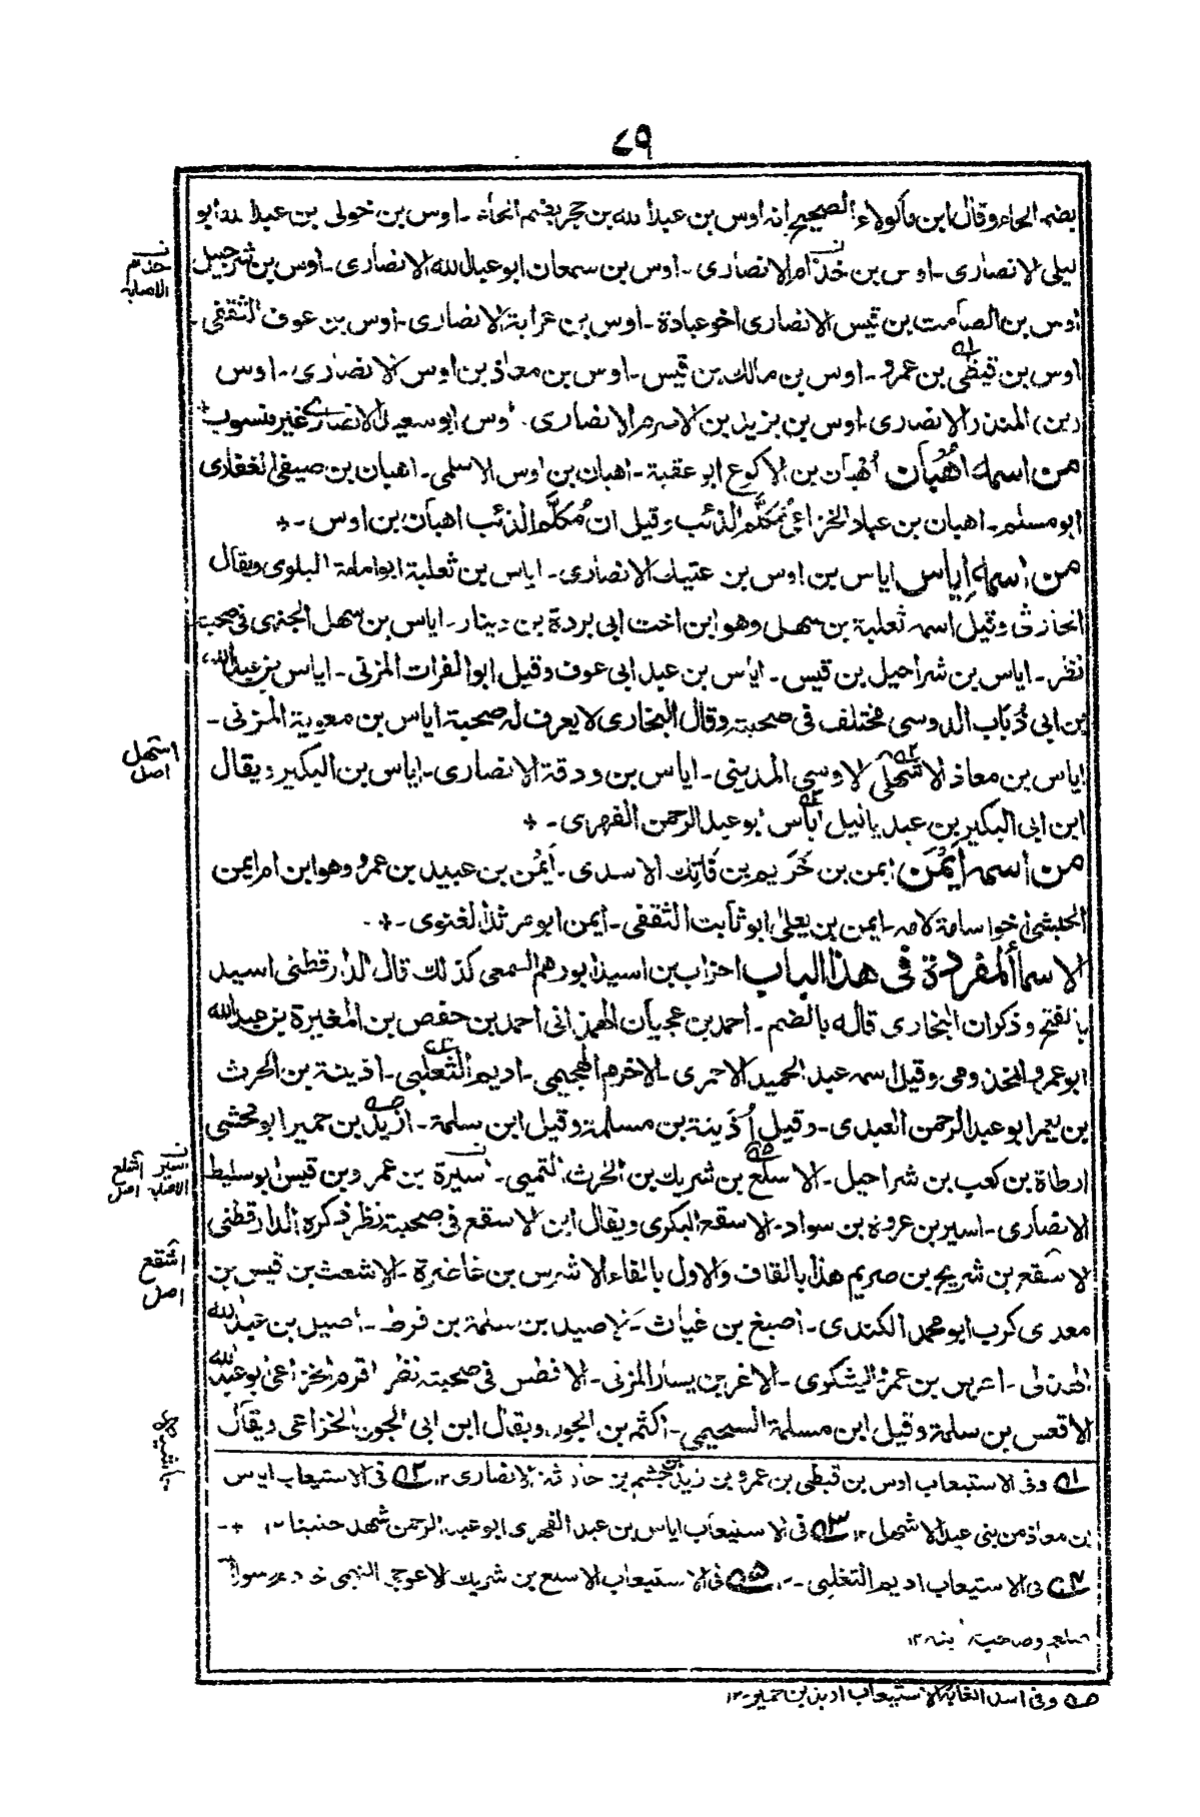 ٧٩
بضم الحاء وقال ابن ماكولاء الصحيح انه اوس بن عبد الله بن حجر بضم الحاء - اوس بن خولى بن عبد الله ابو
ليلى الانصارى - اوس بن خذام الانصارى - اوس بن سمعان ابو عبد الله الانصارى - اوس بن شرحبيل
اوس بن الصامت بن قيس الانصارى اخو عبادة - اوس بن عرابة الانصارى - اوس بن عوف الثقفى -
اوس بن قيظى بن عمرو - اوس بن مالك بن قيس - اوس بن معاذ بن اوس الانصارى - اوس
(بن) المنذر الانصارى اوس بن يزيد بن الاصرم الانصارى - اوس ابو سعيد الانصارى غير منسوب +
من اسمه اُهْبان اُهْبان بن الاكوع ابو عقبة - اهبان بن اوس الاسلمى - اهبان بن صيفى الغفارى
ابو مسلم - اهبان بن عباد الخزاعى مُكَلَّم الذئب وقيل ان مُكَلَّم الذئب اهبان بن اوس - +
من اسمه اِياس اياس بن اوس بن عتيك الانصارى - اياس بن ثعلبة ابو امامة البلوى ويقال
الحارثى وقيل اسمه ثعلبة بن سهل وهو ابن اخت ابى بردة بن دينار - اياس بن سهل الجهنى فى صحبته
نظر - اياس بن شراحيل بن قيس - اياس بن عبد ابى عوف وقيل ابو الفرات المزنى - اياس بن عبد الله
بن ابى ذُباب الدوسى مختلف فى صحبته وقال البخارى لا يعرف له صحبة اياس بن معوية المزنى -
اياس بن معاذ الاشهلى الاوسى المدينى - اياس بن ودقة الانصارى - اياس بن البكير ويقال
ابن ابى البكير بن عبد ياليل اياس ابو عبد الرحمن الفهرى - +
من اسمه اَيْمَن ايمن بن خُرَيم بن فاتك الاسدى - اَيْمُن بن عبيد بن عمرو وهو ابن ام ايمن
الحبشى اخو اسامة لامه - ايمن بن يعلى ابو ثابت الثقفى - ايمن ابو مرثد الغنوى - +
الاسماء المفردة فى هذا الباب احزاب بن اسيد ابو رهم السمعى كذلك قال الدارقطنى اسيد
بالفتح وذكر ان البخارى قاله بالضم - احمد بن عجيان الهمدانى احمد بن حفص بن المغيرة بن عبد الله
ابو عمرو المخزومى وقيل اسمه عبد الحميد الاحمرى - الاخرم الهجيمى - اديم الثعلبى - اذينة بن الحرث
بن يعمر ابو عبد الرحمن العبدى - وقيل اُذَينة بن مسلمة وقيل ابن سلمة - اربد بن حمير ابو مخشى
ارطاة بن كعب بن شراحيل - الاسلع بن شريك بن الحرث التميمى - اسيرة بن عمرو بن قيس ابو سليط
الانصارى - اسير بن عروة بن سواد - الاسقع البكرى ويقال ابن الاسقع فى صحبته نظر ذكره الدارقطنى
الاسقع بن شريح بن صريم هذا بالقاف والاول بالفاء الاشرس بن غاضرة - الاشعث بن قيس بن
معدى كرب ابو محمد الكندى - اصبغ بن غياث - الاصيد بن سلمة بن قرط - اصيل بن عبد الله
الهذلى - اعرس بن عمرو اليشكرى - الاغر بن يسار المزنى - الافطس فى صحبته نظر اقرم الخزاعى ابو عبد الله
الاقعس بن سلمة وقيل ابن مسلمة السحيمى - اكثم بن الجون ويقال ابن ابى الجون الخزاعى ويقال
ن خذام الاصابه
اشهل اصل
ن اسير الاصابه
اشلع اصل
اشقع اصل
له وفى الاستيعاب اوس بن قيظى بن عمرو بن زيد بن جشم بن حارثة الانصارى ١٢ ٢ه فى الاستيعاب اياس
بن معاذ من بنى عبد الاشهل ١٢ ٣ه فى الاستيعاب اياس بن عبد الفهرى ابو عبد الرحمن شهد حنينا ١٢ +-
٤ه فى الاستيعاب اديم التغلبى - ١٢ ٥ه فى الاستيعاب الاسلع بن شريك الاعوجى التميمى خادم رسول الله
صلعم وصاحب
٥ه وفى اسد الغابة والاستيعاب اربد بن حمير - ١٢